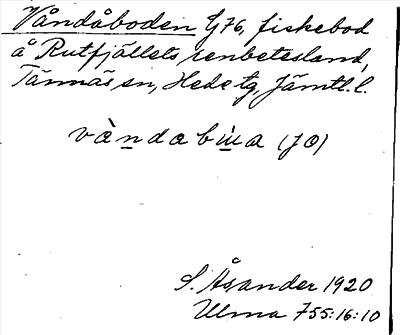 Våndåboden G76, fiskebod
å Rutfjällets renbetesland,
Tännäs sn, Hede tg, Jämtl. l.
vàndabùa (JO)
S. Åsander 1920
Ulma 755:16:10